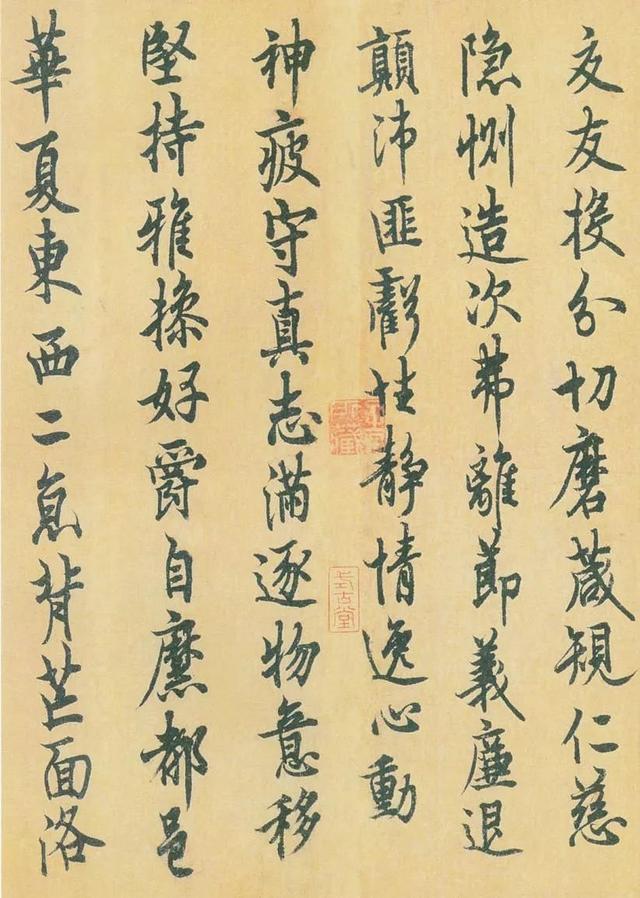 交友投分切磨箴規仁慈
隐惻造次弗離節義廉退
顛沛匪虧性静情逸心動
神疲守真志滿逐物意移
堅持雅操好爵自縻都邑
華夏東西二京背芒面洛
式古堂